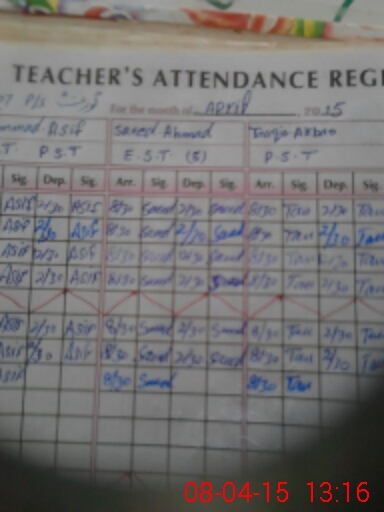 TEACHER'S ATTENDANCE REGI
P/S گورنمنٹ
For the month of APRIL , 2015
mmad Asif Saeed Ahmad Tariq Akbar
T. P.S.T E.S.T. (S) P.S.T
Sig. Dep. Sig. Arr. Sig. Dep. Sig. Arr. Sig. Dep. Sig.
Asif 2/30 Asif 8/30 Saeed 2/30 Saeed 8/30 Tari 2/30 Tari
Asif 2/30 Asif 8/30 Saeed 2/30 Saeed 8/30 Tari 2/30 Tari
Asif 2/30 Asif 8/30 Saeed 2/30 Saeed 8/30 Tari 2/30 Tari
Asif 2/30 Asif 8/30 Saeed 2/30 Saeed 8/30 Tari 2/30 Tari
Asif 2/30 Asif 8/30 Saeed 2/30 Saeed 8/30 Tari 2/30 Tari
Asif 2/30 Asif 8/30 Saeed 2/30 Saeed 8/30 Tari 2/30 Tari
Asif 8/30 Saeed 8/30 Tari
08-04-15 13:16